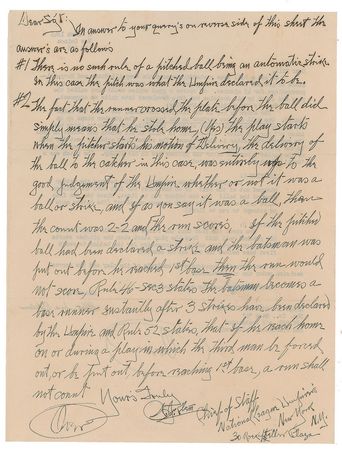 Dear Sir:
In answer to your query's on reverse side of this sheet the
answer's are as follows
#1 There is no such rule of a pitched ball being an automatic strike.
In this case the pitch was what the Umpire declared it to be.
#2 The fact that the runner crossed the plate before the ball did
simply means that he stole home, (Yes) the play starts
when the pitcher starts his motion of Delivery, the delivery of
the ball to the catcher in this case was entirely up to the
good judgement of the Umpire whether or not it was a
ball or strike, and if as you say it was a ball then
the count was 2-2 and the run scores, if the pitched
ball had been declared a strike and the batsman was
put out before he reached 1st base then the run would
not score, Rule 46-Sec3 states the batsman becomes a
base runner instantly after 3 strikes have been declared
by the Umpire and Rule 52 states, that if he reach home
on or during a play in which the third man be forced
out or be put out before reaching 1st base, a run shall
not count
Yours Truly
Chief of Staff
National League Umpires
New York
30 Rockefeller Plaza N.Y.
Over